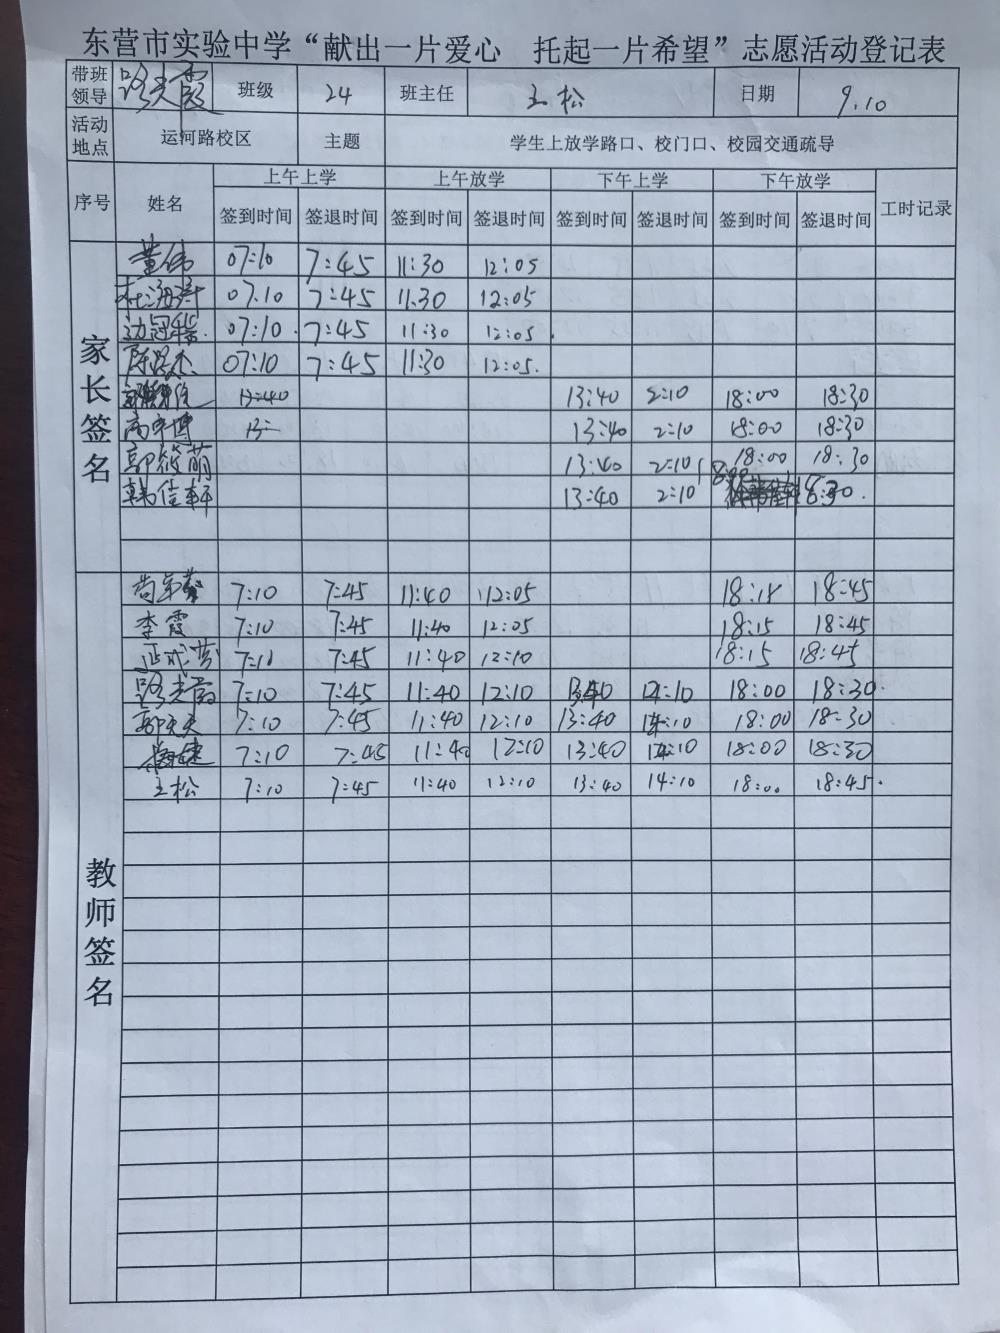 东营市实验中学“献出一片爱心 托起一片希望”志愿活动登记表
带班领导 路 霞 班级 24 班主任 王松 日期 9.10
活动地点 运河路校区 主题 学生上放学路口、校门口、校园交通疏导
序号 姓名 上午上学 上午放学 下午上学 下午放学 工时记录
签到时间 签退时间 签到时间 签退时间 签到时间 签退时间 签到时间 签退时间
家长签名
董伟 07:10 7:45 11:30 12:05
杜海 07:10 7:45 11:30 12:05
边冠 07:10 7:45 11:30 12:05
07:10 7:45 11:30 12:05
13:40 2:10 18:00 18:30
高 博 13:40 2:10 18:00 18:30
郭筱萌 13:40 2:10 18:00 18:30
韩佳轩 13:40 2:10 18:00 18:30
教师签名
7:10 7:45 11:40 12:05 18:15 18:45
李霞 7:10 7:45 11:40 12:05 18:15 18:45
7:10 7:45 11:40 12:10 18:15 18:45
路 7:10 7:45 11:40 12:10 13:40 14:10 18:00 18:30
7:10 7:45 11:40 12:10 13:40 14:10 18:00 18:30
7:10 7:45 11:40 12:10 13:40 14:10 18:00 18:30
王松 7:10 7:45 11:40 12:10 13:40 14:10 18:00 18:45